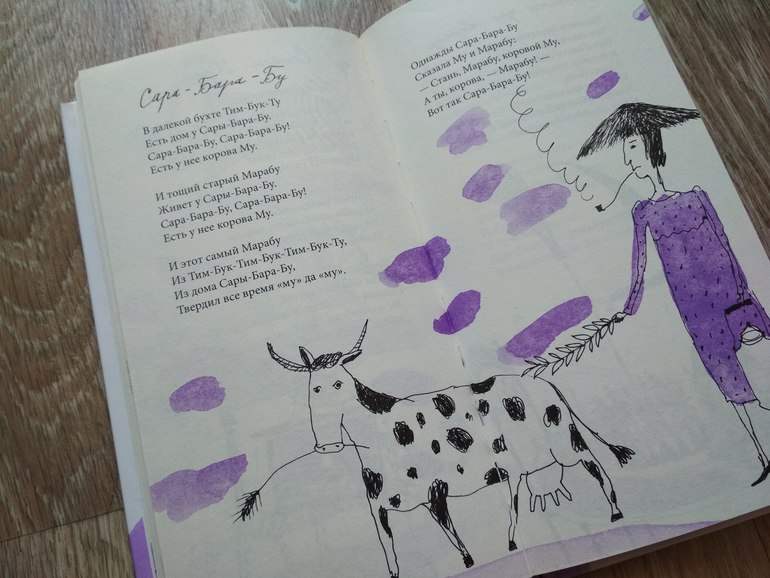 Сара-Бара-Бу
В далекой бухте Тим-Бук-Ту
Есть дом у Сары-Бара-Бу.
Сара-Бара-Бу, Сара-Бара-Бу!
Есть у нее корова Му.
И тощий старый Марабу
Живет у Сары-Бара-Бу.
Сара-Бара-Бу, Сара-Бара-Бу!
Есть у нее корова Му.
И этот самый Марабу
Из Тим-Бук-Тим-Бук-Тим-Бук-Ту,
Из дома Сары-Бара-Бу,
Твердил все время «му» да «му».
Однажды Сара-Бара-Бу
Сказала Му и Марабу:
— Стань, Марабу, коровой Му,
А ты, корова, — Марабу! —
Вот так Сара-Бара-Бу!